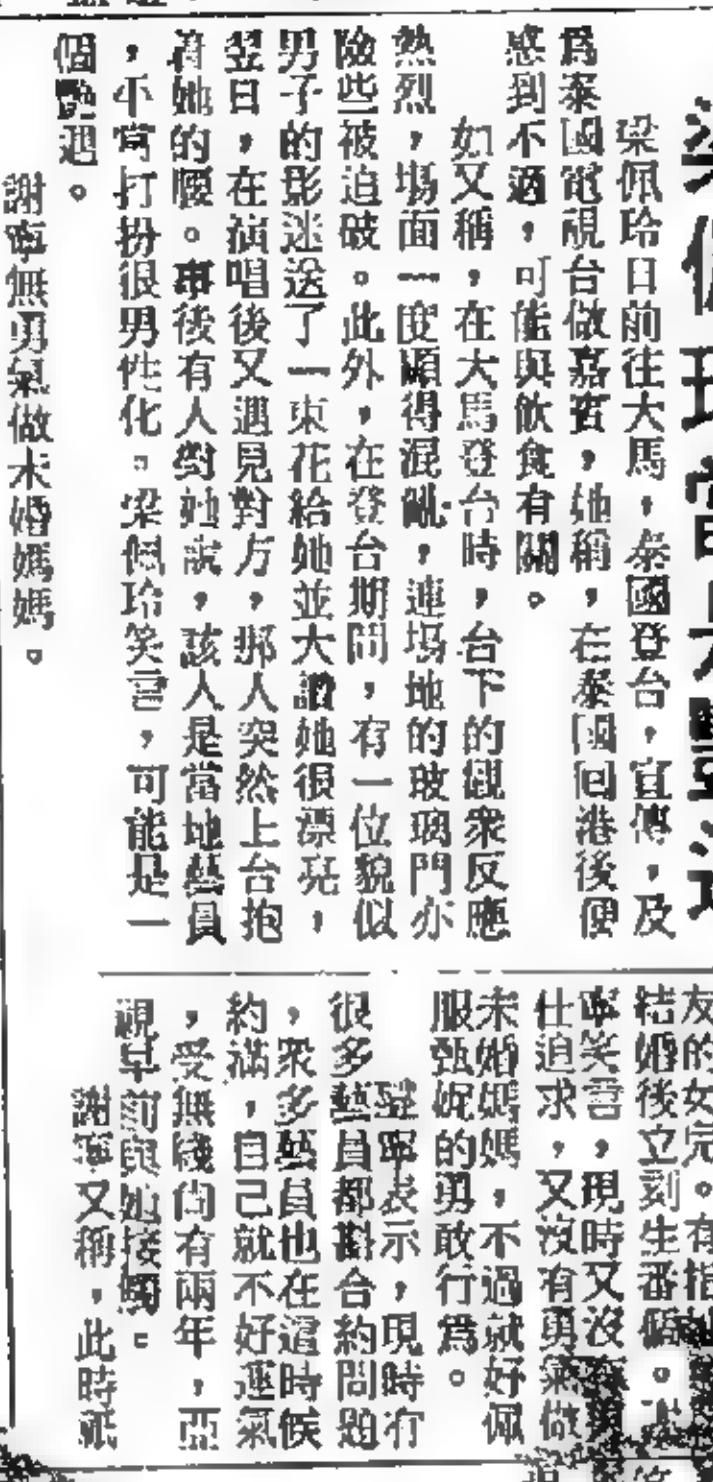 梁佩玲當是豔遇
梁佩玲日前往大馬，泰國登台，宣傳，及
爲泰國電視台做嘉賓，她稱，在泰國回港後便
感到不適，可能與飲食有關。
她又稱，在大馬登台時，台下的觀衆反應
熱烈，塲面一度顯得混亂，連塲地的玻璃門亦
險些被迫破。此外，在登台期間，有一位貌似
男子的影迷送了一束花給她並大讚她很漂亮，
翌日，在演唱後又遇見對方，那人突然上台抱
着她的腰。事後有人對她說，該人是當地藝員
，平常打扮很男性化。梁佩玲笑言，可能是一
個艷遇。
謝寧無勇氣做未婚媽媽。
友的女兒。有指她
結婚後立刻生番個。謝
寧笑言，現時又沒有男
仕追求，又沒有勇氣做
未婚媽媽，不過就好佩
服甄妮的勇敢行爲。
謝寧表示，現時有
很多藝員都斟合約問題
，衆多藝員也在這時候
約滿，自己就不好運氣
，受無綫尙有兩年，亞
視早前與她接觸。
謝寧又稱，此時祇